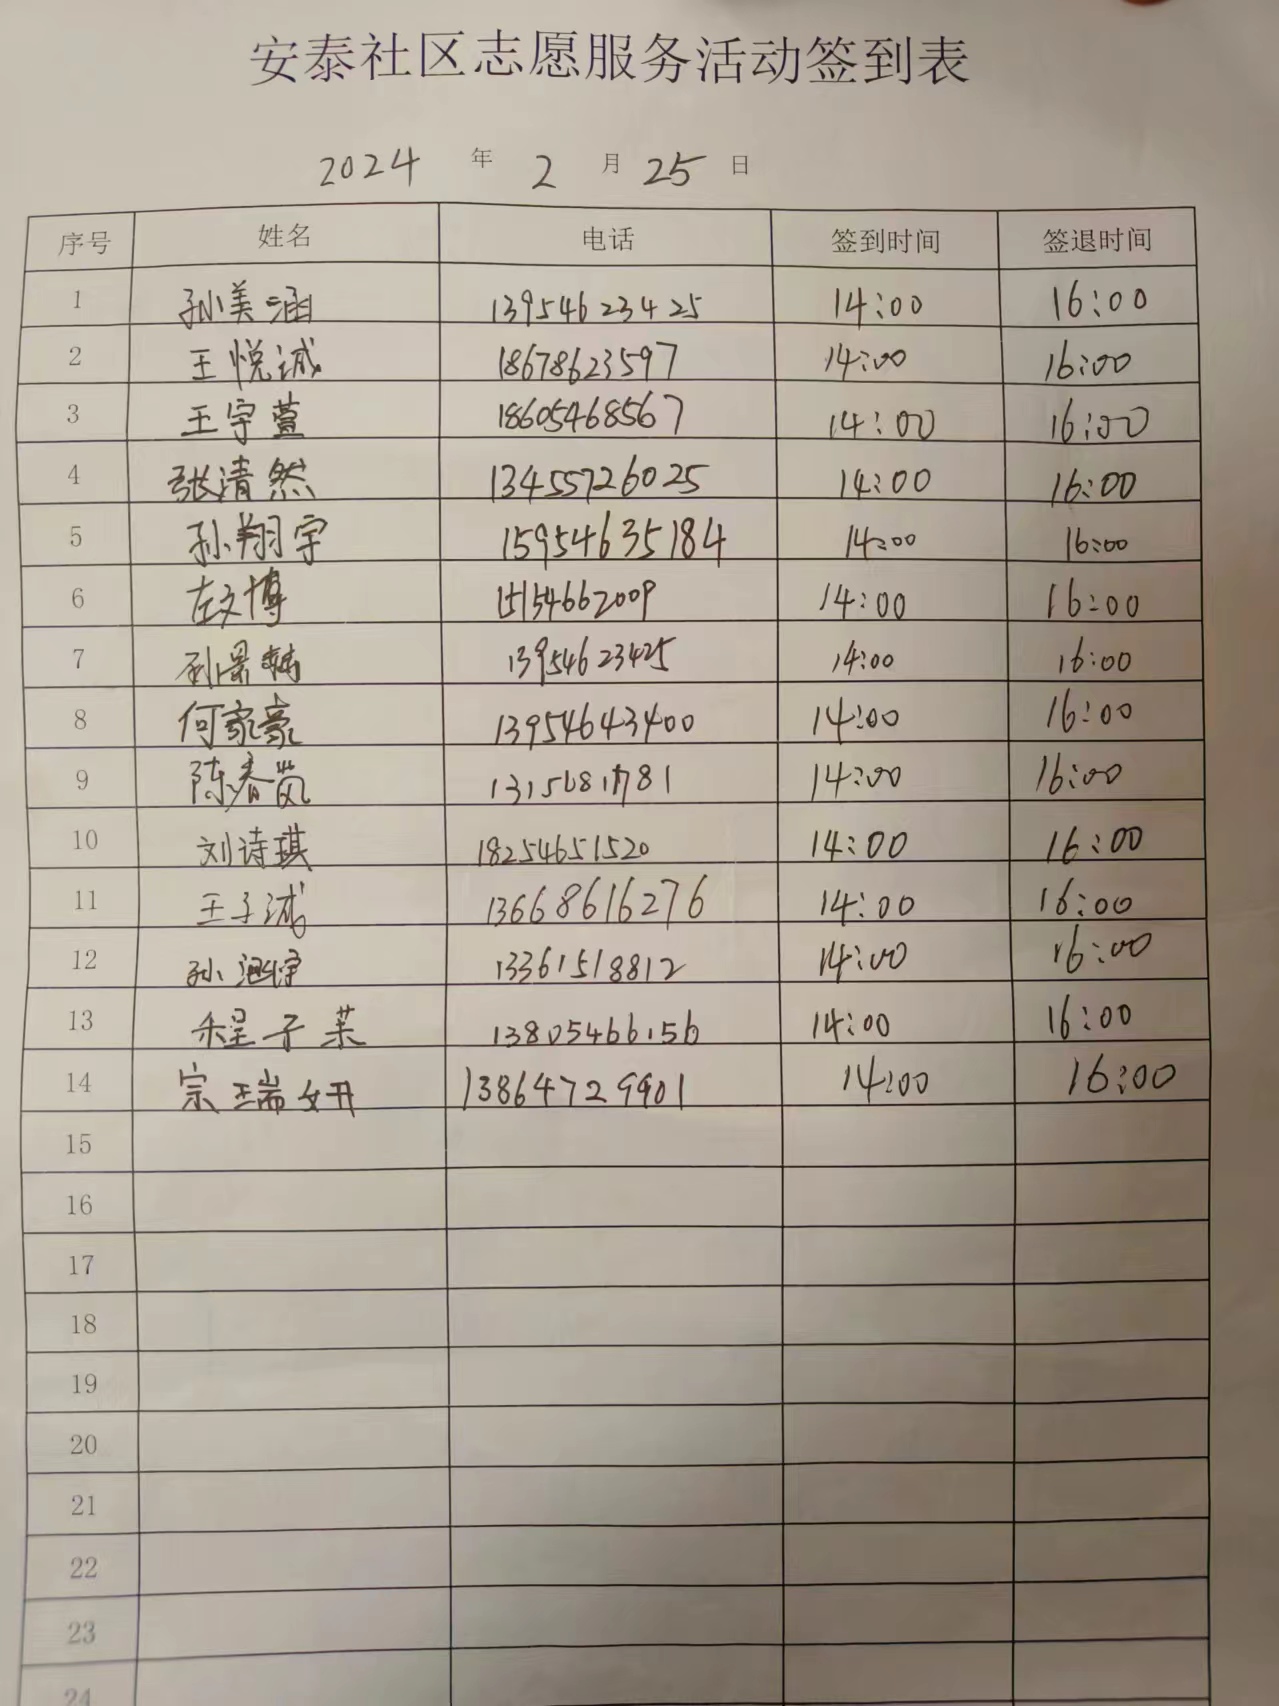 安泰社区志愿服务活动签到表
2024 年 2 月 25 日
序号 姓名 电话 签到时间 签退时间
1 孙美涵 13954623425 14:00 16:00
2 王悦诚 18678623597 14:00 16:00
3 王宇萱 18605468567 14:00 16:00
4 张清然 13455726025 14:00 16:00
5 孙翔宇 15954635184 14:00 16:00
6 左文博 15154662009 14:00 16:00
7 13954623425 14:00 16:00
8 何家豪 13954643400 14:00 16:00
9 陈春岚 14:00 16:00
10 刘诗琪 18254651520 14:00 16:00
11 王子诚 13668616276 14:00 16:00
12 孙涵宇 13361518812 14:00 16:00
13 程子茉 13805466156 14:00 16:00
14 宗瑞妍 13864729901 14:00 16:00
15
16
17
18
19
20
21
22
23
24